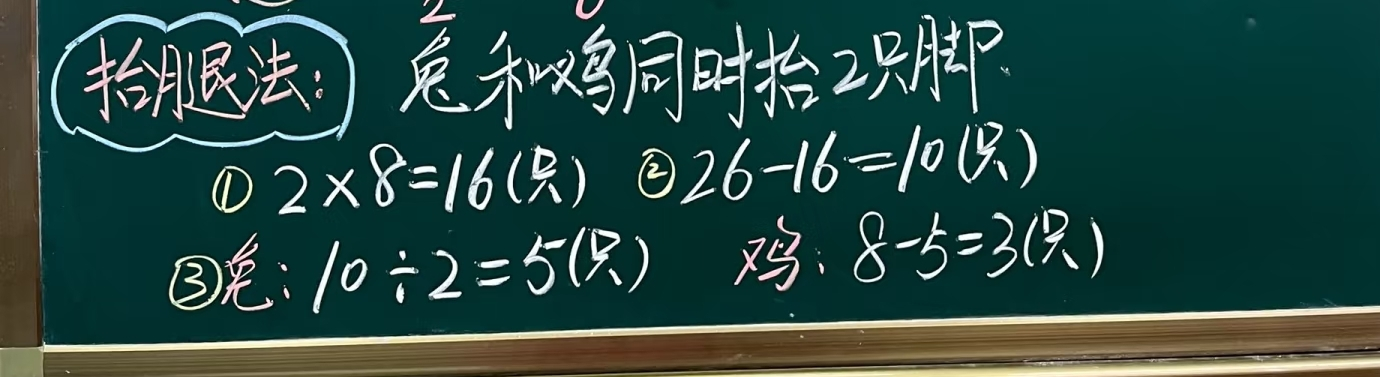 抬腿法: 兔和鸡同时抬2只脚.
①2×8=16(只) ②26-16=10(只)
③兔:10÷2=5(只) 鸡:8-5=3(只)